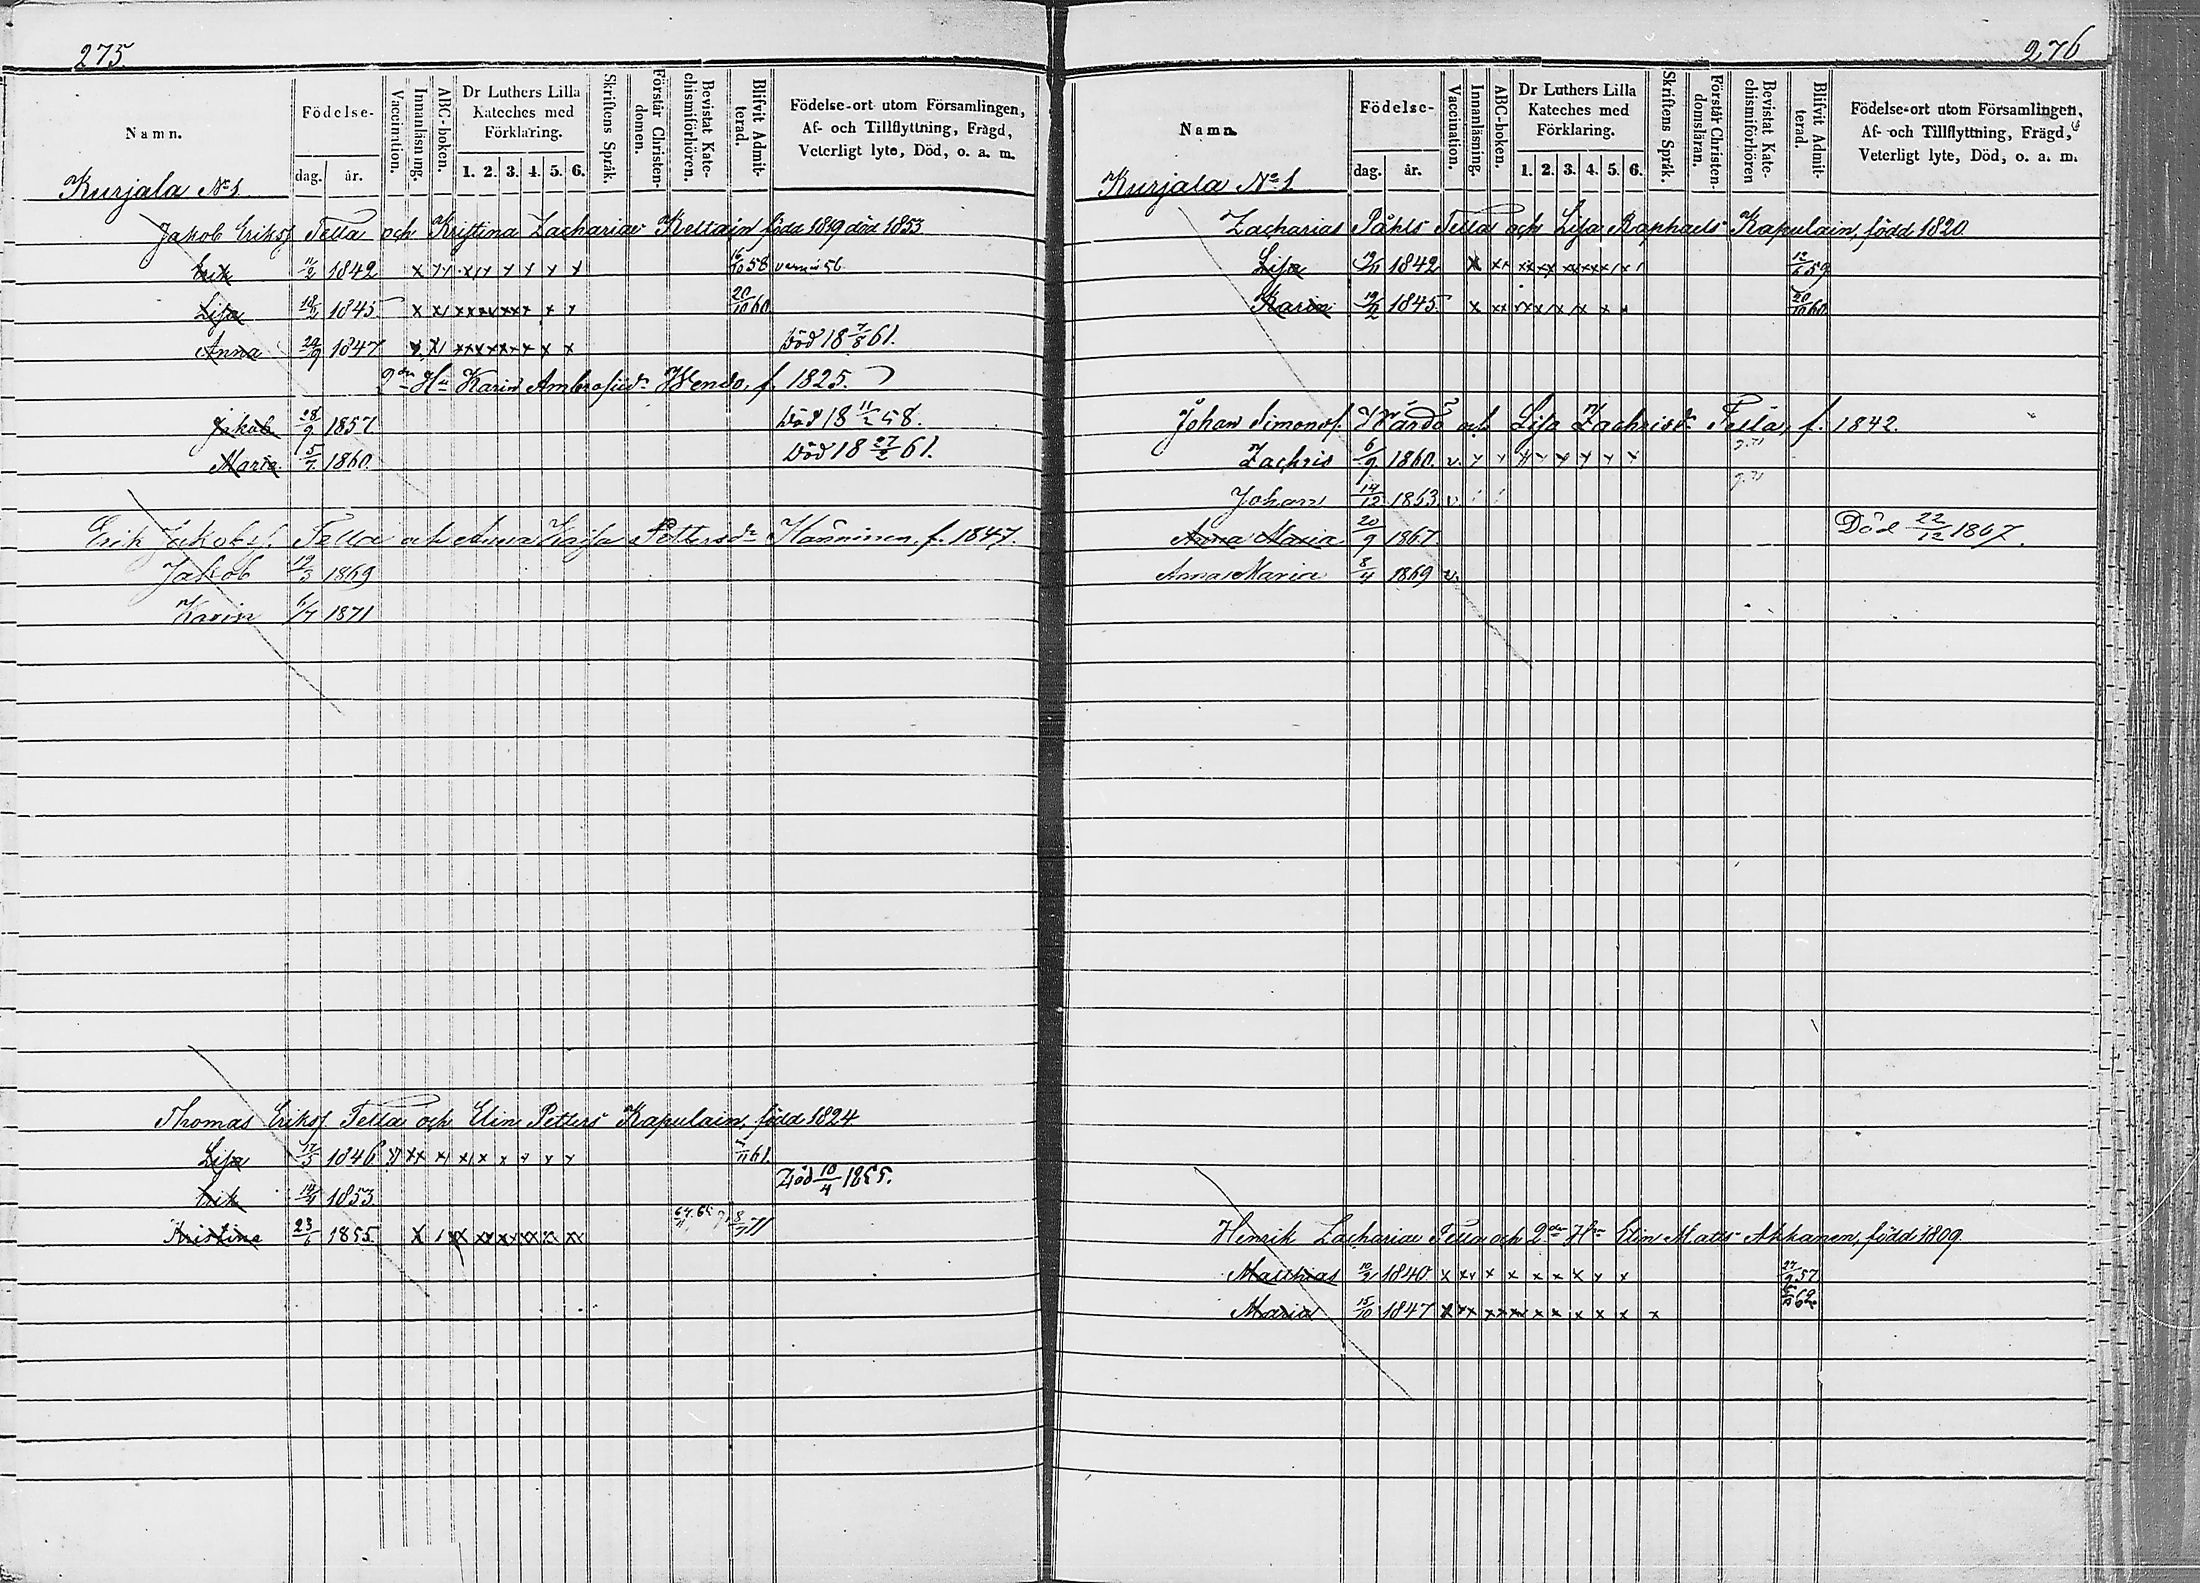 275
Namn.
Födelse-
dag. år.
Vaccination.
Innanläsning.
ABC-boken.
Dr Luthers Lilla Kateches med Förklaring.
1. 2. 3. 4. 5. 6.
Skriftens Språk.
Förstår Christendomen.
Bevistat Katechismiförhören.
Blifvit Admitterad.
Födelse-ort utom Församlingen,
Af- och Tillflyttning, Frägd,
Veterligt lyte, Död, o. a. m.
Kurjala No 1
Jakob Eriksf Tella och Kristina Zacharias Keltain född 1819 död 1853
Erik 1842 58
Lisa 1845 20/10 60
Anna 29/9 1847 Död 18 7/8 61.
2dra Hu Karin Ambrosiidr f. 1825.
Jakob 28/9 1857 Död 18 11/2 58.
Maria 5/7 1860. Död 18 27/2 61.
Erik Jakobsf. Tella och Anna Kajsa Pettersdr Hänninen, f. 1847.
Jakob 1869
Karin 1871
Thomas Eriksf Tella och Elin Petters Kapulain, född 1824
Lisa 1846 61.
Erik 1853 Död 10/4 1855.
Kristina 23/6 1855 71
276
Namn.
Födelse-
dag. år.
Vaccination.
Innanläsning.
ABC-boken.
Dr Luthers Lilla Kateches med Förklaring.
1. 2. 3. 4. 5. 6.
Skriftens Språk.
Förstår Christendomsläran.
Bevistat Katechismiförhören
Blifvit Admitterad.
Födelse-ort utom Församlingen,
Af- och Tillflyttning, Frägd,
Veterligt lyte, Död, o. a. m.
Kurjala No 1
Zacharias Påhls Tella och Lisa Raphaels Kapulain, född 1820
Lisa 1842 59
Karin 1845 20/10 60
Johan Simonsf. och Lisa Zachrisdr Tella, f. 1842.
Zachris 6/9 1860. v.
Johan 14/12 1863. v.
Anna Maria 20/9 1867 Död 22/12 1867.
Anna Maria 8/4 1869 v.
Henrik Zacharias Tella och 2dra Hu Elin Mats Ahkanen, född 1809
Matthias 1840 57
Maria 15/10 1847 62